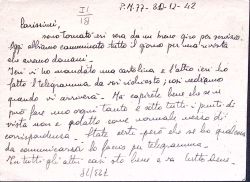 II
18
P.M. 77 - 30-12-42
Carissimi,
sono tornato ieri sera da un breve giro per servizio.
Oggi abbiamo camminato tutto il giorno per una rivista
che avremo domani.
Ieri vi ho mandato una cartolina e l'altro ieri ho
fatto il telegramma da voi richiesto; così vediamo
quando vi arriverà. Ma capirete bene che se si
può fare uno ogni tanto e sotto tutti i punti di
vista non è adatto come normale mezzo di
corrispondenza. State certi però che se ho qualcosa
da comunicarvi lo faccio per telegramma.
In tutti gli altri casi sto bene e va tutto bene.